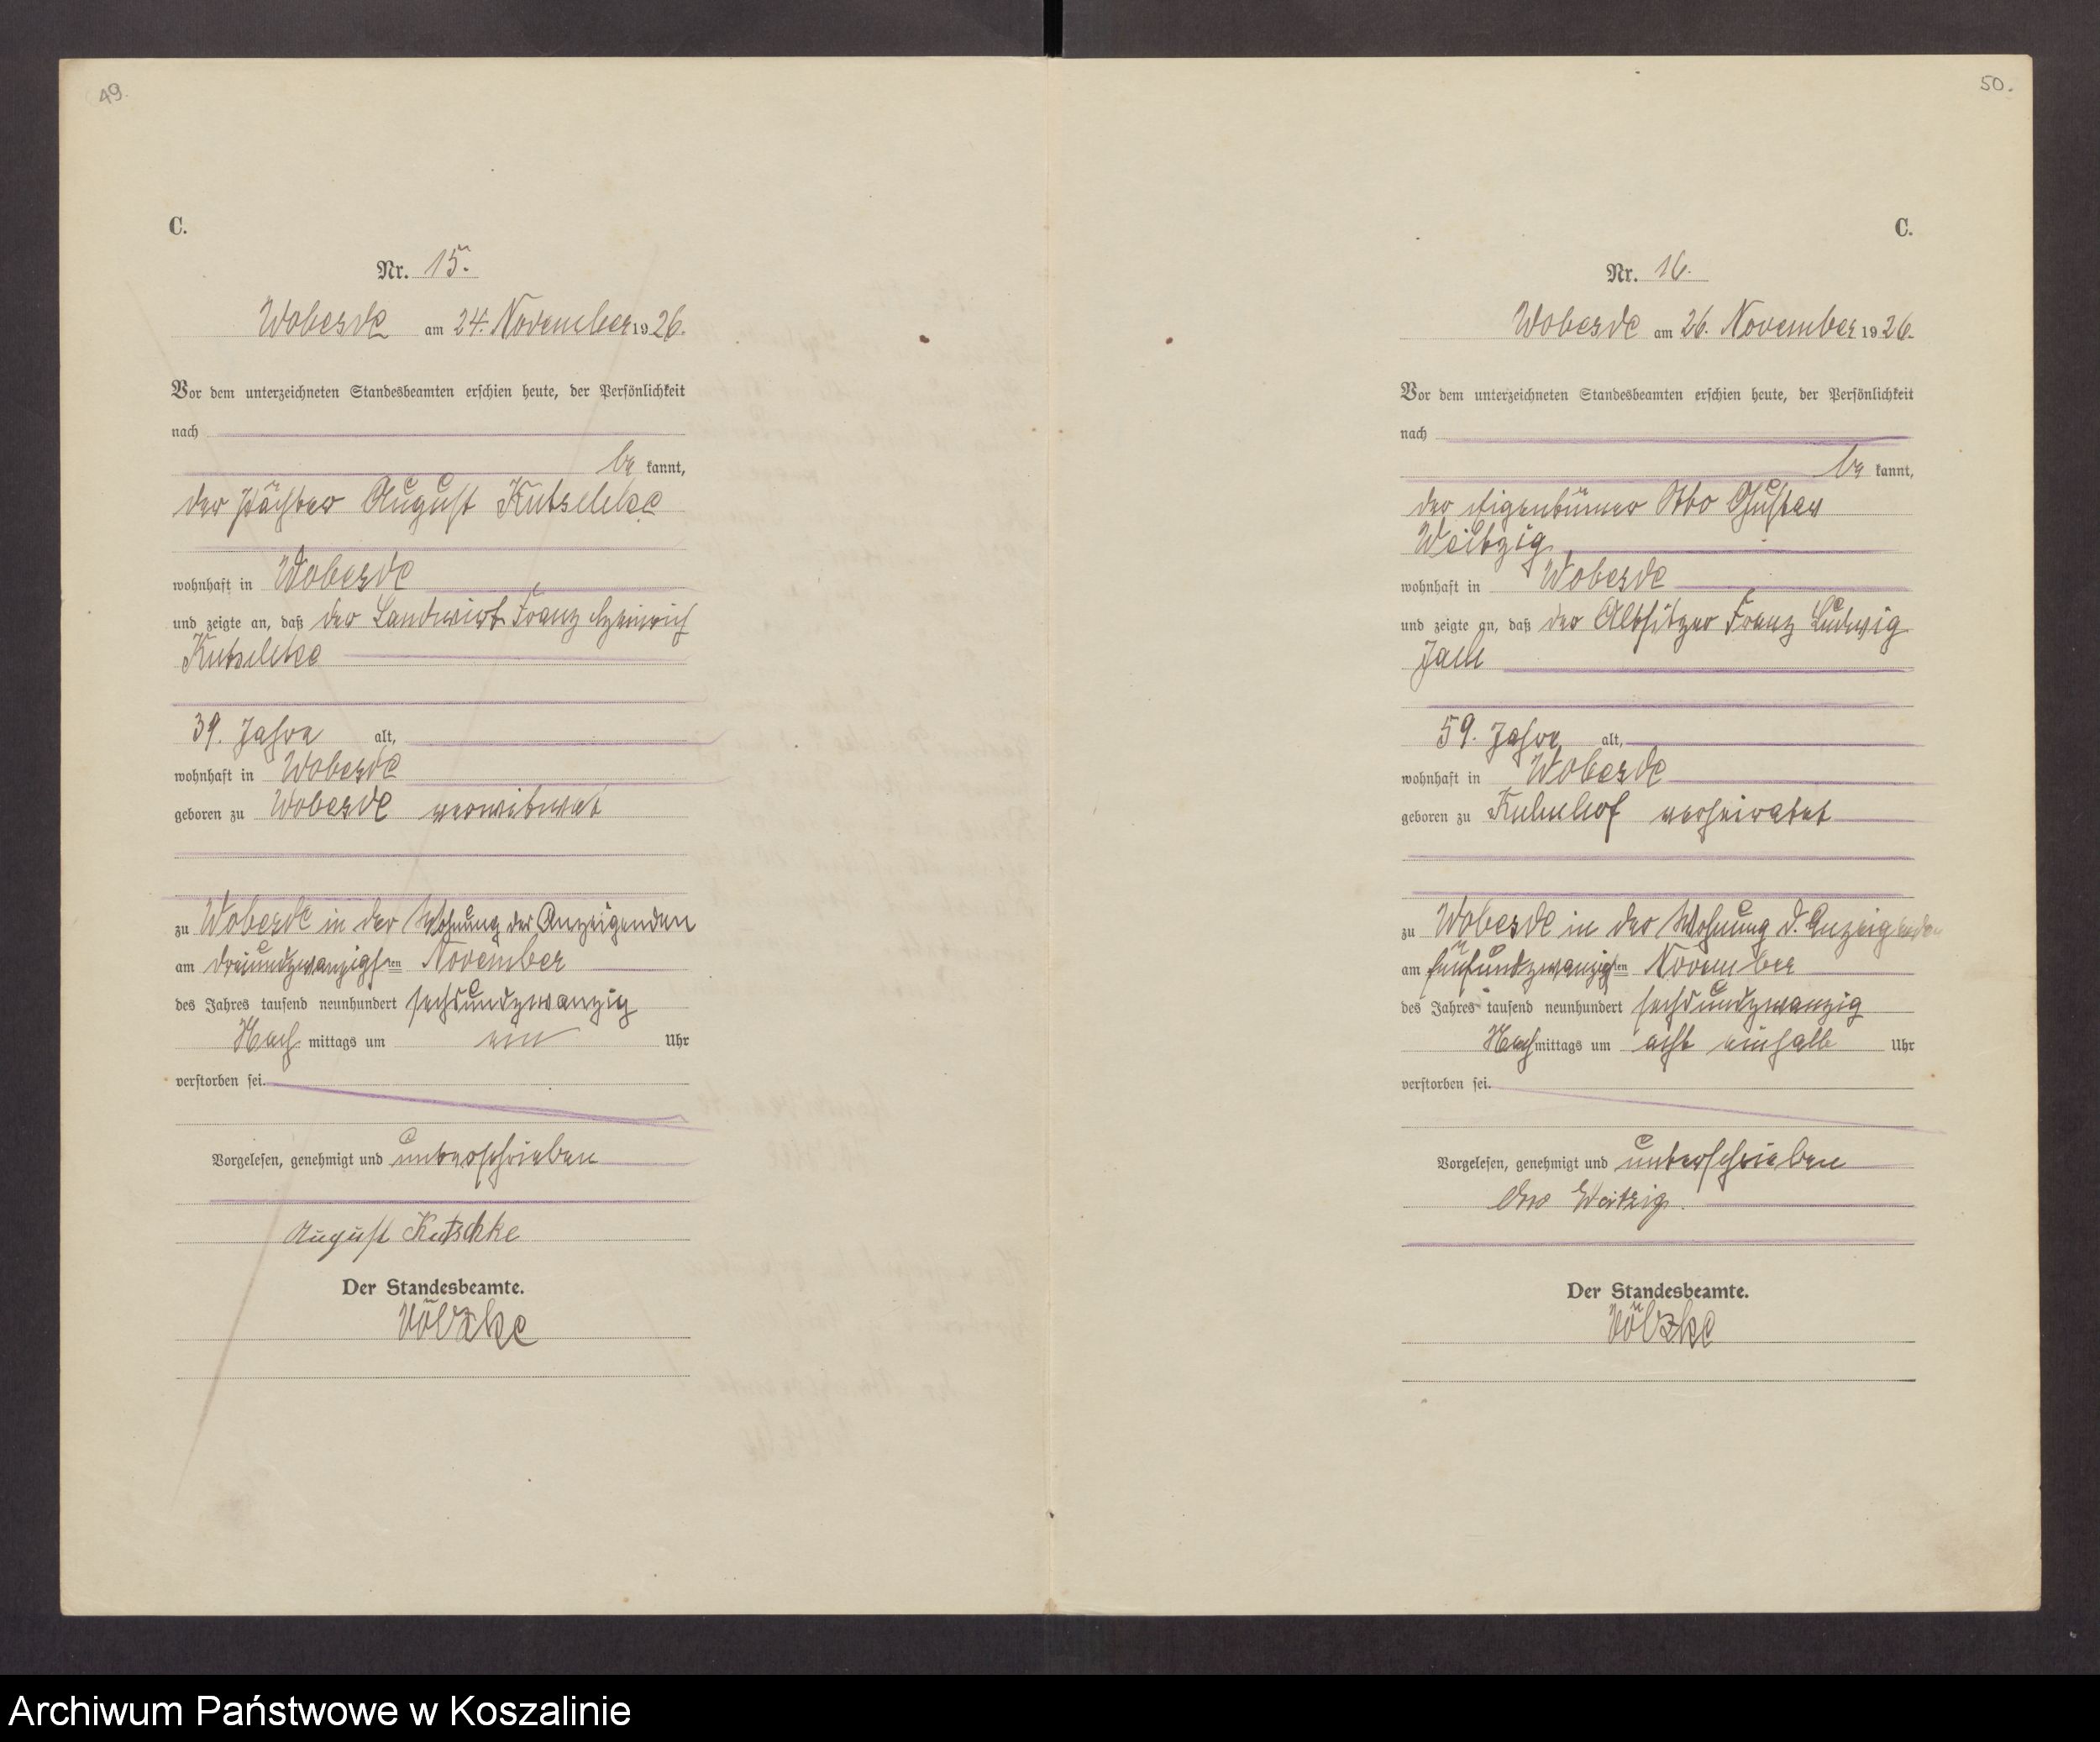 49.
C.
Nr. 15.
Woberde am 24. November 1926.
Vor dem unterzeichneten Standesbeamten erschien heute, der Persönlichkeit
nach
be kannt,
der Pächter August Kutschke
wohnhaft in Woberde
und zeigte an, daß der Landwirt Franz Heinrich
Kutschke
39. Jahre alt,
wohnhaft in Woberde
geboren zu Woberde verwitwet
zu Woberde in der Wohnung des Anzeigenden
am dreiundzwanzigsten November
des Jahres tausend neunhundert sechsundzwanzig
Nach mittags um ein Uhr
verstorben sei.
Vorgelesen, genehmigt und unterschrieben
August Kutschke
Der Standesbeamte.
Völzke
50.
C.
Nr. 16.
Woberde am 26. November 1926.
Vor dem unterzeichneten Standesbeamten erschien heute, der Persönlichkeit
nach
be kannt,
der Eigentümer Otto Gustav
Weitzig
wohnhaft in Woberde
und zeigte an, daß der Altsitzer Franz Ludwig
59. Jahre alt,
wohnhaft in Woberde
geboren zu Kulmhof verheiratet
zu Woberde in der Wohnung d. Anzeigenden
am fünfundzwanzigsten November
des Jahres tausend neunhundert sechsundzwanzig
Nach mittags um acht einhalb Uhr
verstorben sei.
Vorgelesen, genehmigt und unterschrieben
Otto Weitzig.
Der Standesbeamte.
Völzke
Archiwum Państwowe w Koszalinie